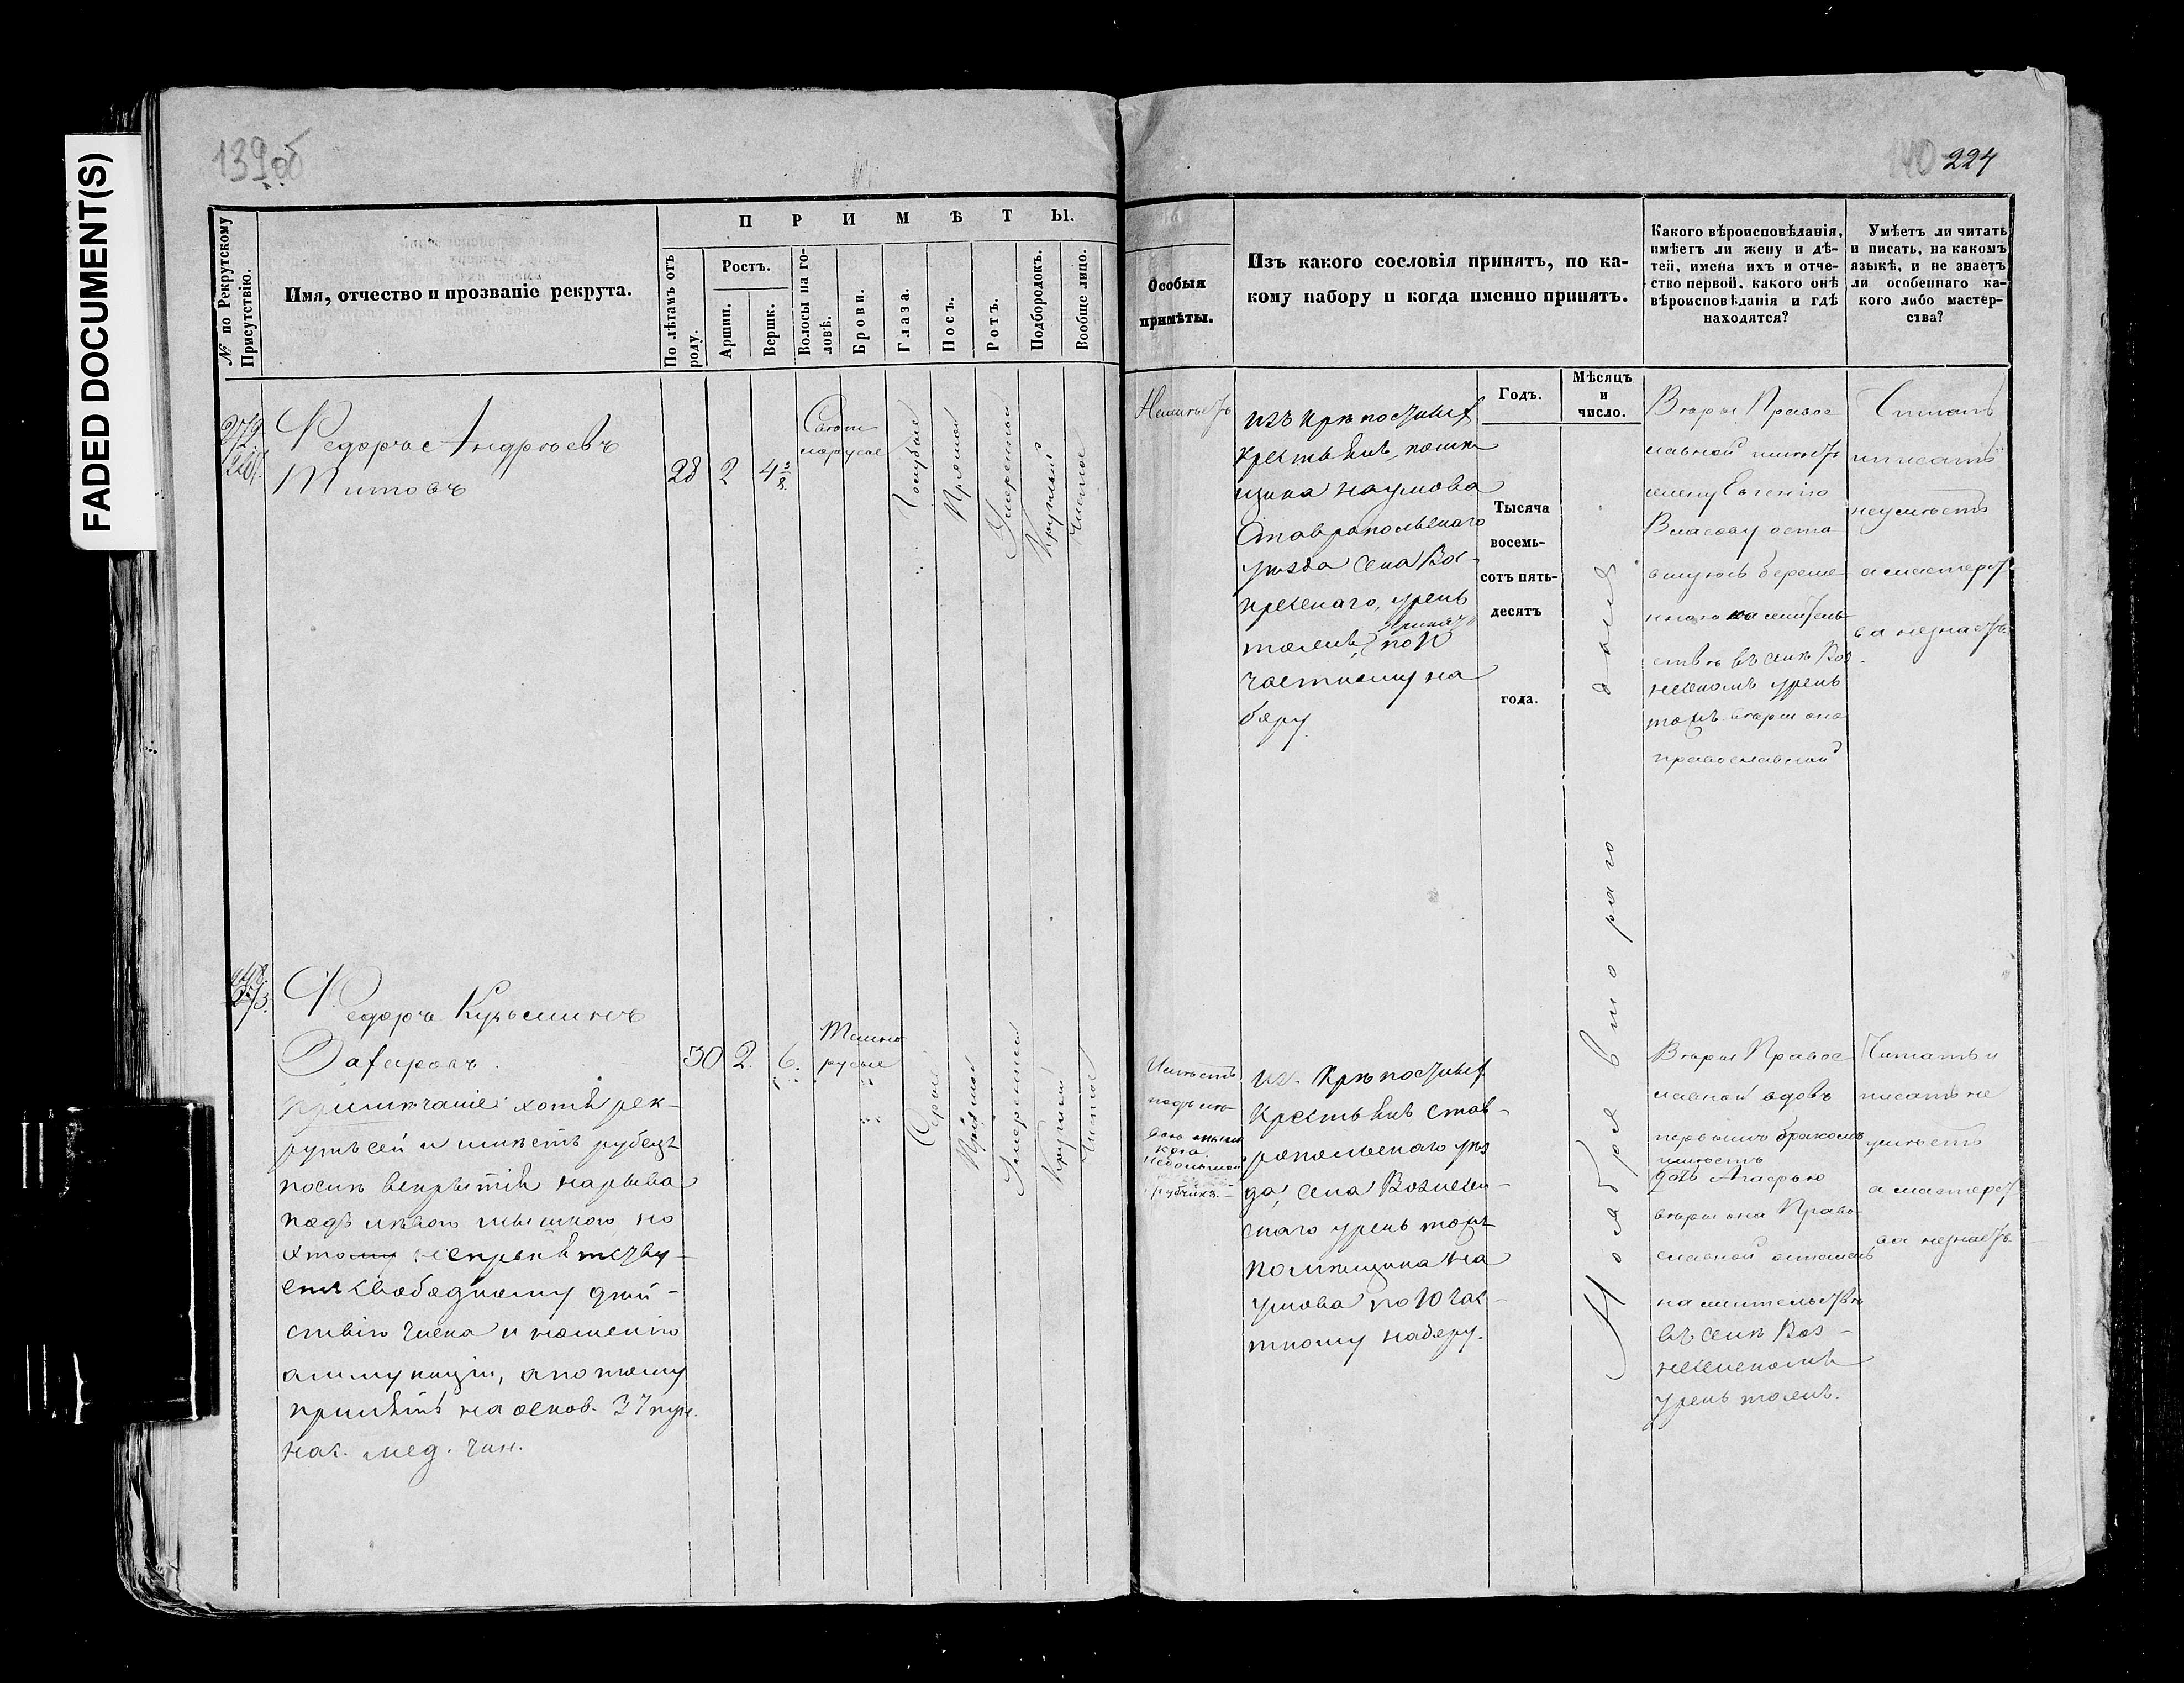 FADED DOCUMENT(S)
139об
140 224
№ по Рекрутскому Присутствію.
Имя, отчество и прозваніе рекрута.
ПРИМѢТЫ.
По лѣтамъ отъ роду.
Ростъ.
Аршин.
Вершк.
Волосы на головѣ.
Брови.
Глаза.
Носъ.
Ротъ.
Подбородокъ.
Вообще лицо.
Особыя
примѣты.
Изъ какого сословія принятъ, по ка-
кому набору и когда именно принятъ.
Годъ.
Мѣсяцъ
и
число.
Какого вѣроисповѣданія,
имѣетъ ли жену и дѣ-
тей, имена ихъ и отче-
ство первой, какого онѣ
вѣроисповѣданія и гдѣ
находятся?
Умѣетъ ли читать
и писать, на какомъ
языкѣ, и не знаетъ
ли особеннаго ка-
кого либо мастер-
ства?
Федоръ Андреевъ
Титовъ
28
2
4 3/8
Свѣтло
русые
Голубые
Прямой
Умеренный
Круглый
Чистое
Неимѣетъ
изъ крѣпостных
крестьянъ, помѣ
щика Наумова
Ставропольскаго
уѣзда села Воз-
несенскаго, урень
тожъ, принятъ по 10
частному на
бору.
Тысяча
восемь-
сотъ пять-
десятъ
года.
Ноября втораго дня
Вѣры Правос
лавной имѣетъ
жену Евгенію
Власову оста
вшуюсь береме
нною на жительс
твѣ въ селѣ Воз
несенскомъ урень
тожъ вѣры она
православной
Читать
и писать
неумѣетъ
а мастерст
ва незнаетъ.
Федоръ Кузьминъ
Захаровъ.
30
2.
6.
Темно
русые
Серые
Прямой
Умеренный
Круглый
Чистое
примѣчаніе: хотя рек-
рутъ сей и имѣетъ рубецъ
послѣ вскрытія нарыва
подъ лѣвою мышкою, но
это не препятству-
етъ свободному дѣй-
ствію члена и ношенію
аммуниціи, а потому
принятъ на основ. 37 пун.
нас. мед. чин.
Имѣетъ
подъ лѣ-
вою мыш
кою
небольшой
рубчикъ.
из. Крѣпостных
Крестьянъ став-
ропольскаго уѣз
да, села Вознесен-
скаго урень тожъ
помѣщика На
умова по 10 час-
тному набору.
Вѣры Правос
лавной вдовъ
первымъ бракомъ
имѣетъ
дочь Агафью
вѣры она Право
славной осталась
на жительствѣ
въ селѣ Воз-
несенскомъ
урень тожъ.
Читать и
писать не
умѣетъ
а мастерст
ва незнаетъ.